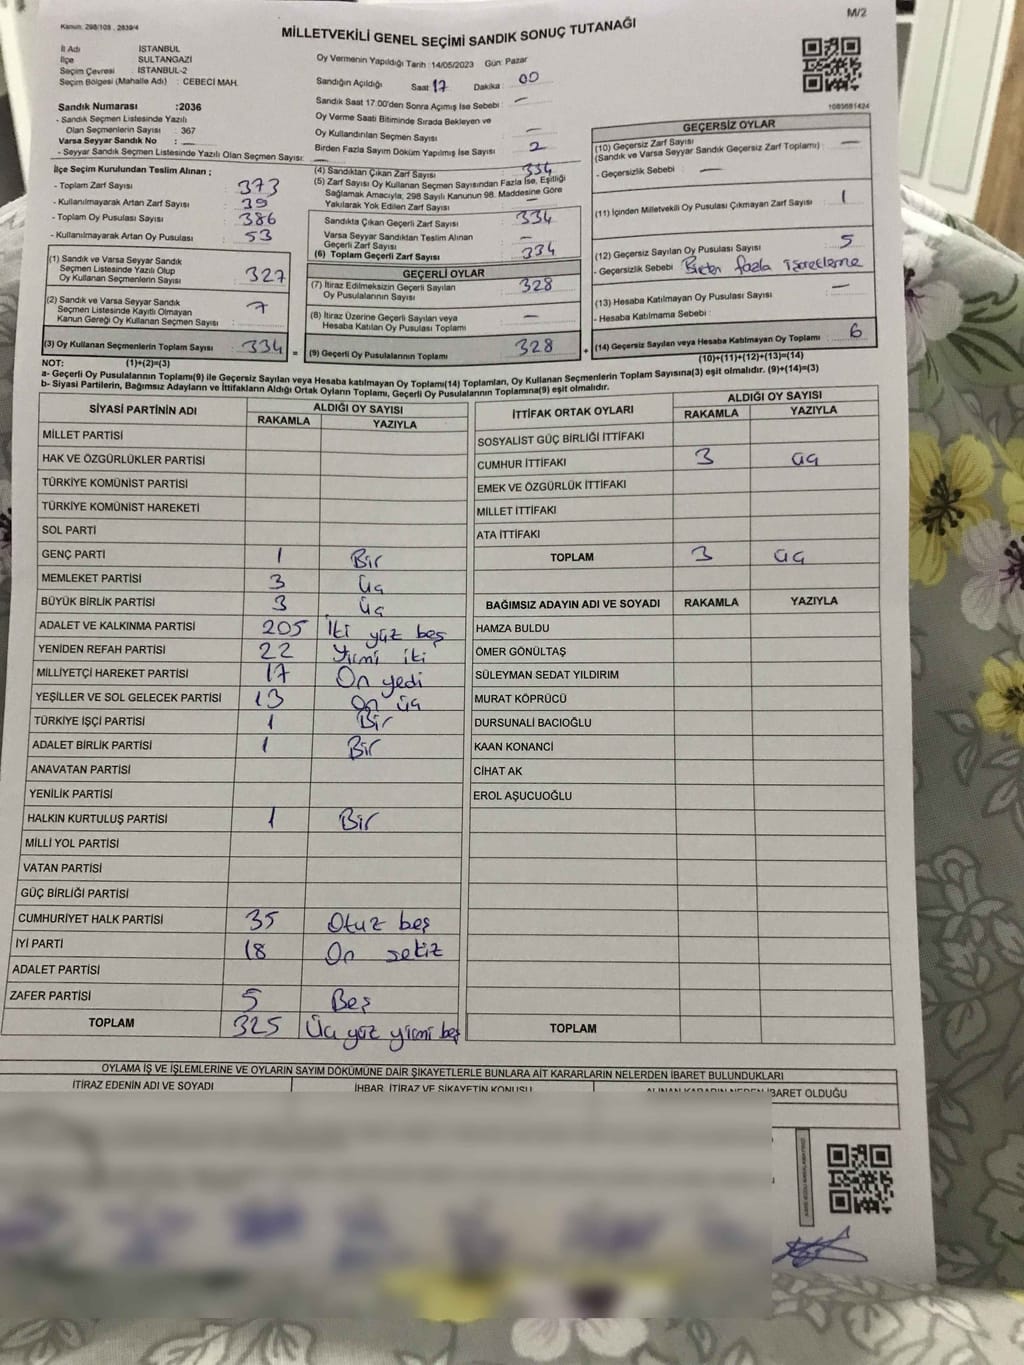 Kanun: 298/108 , 2839/4
M/2
MİLLETVEKİLİ GENEL SEÇİMİ SANDIK SONUÇ TUTANAĞI
İl Adı İSTANBUL
İlçe SULTANGAZİ
Seçim Çevresi : İSTANBUL-2
Seçim Bölgesi (Mahalle Adı) : CEBECİ MAH.
Sandık Numarası :2036
- Sandık Seçmen Listesinde Yazılı
Olan Seçmenlerin Sayısı : 367
Varsa Seyyar Sandık No : —
- Seyyar Sandık Seçmen Listesinde Yazılı Olan Seçmen Sayısı: —
Oy Vermenin Yapıldığı Tarih :14/05/2023 Gün: Pazar
Sandığın Açıldığı Saat 17 Dakika : 00
Sandık Saat 17:00'den Sonra Açımış İse Sebebi : —
Oy Verme Saati Bitiminde Sırada Bekleyen ve
Oy Kullandırılan Seçmen Sayısı —
Birden Fazla Sayım Döküm Yapılmış İse Sayısı 2
1083681424
İlçe Seçim Kurulundan Teslim Alınan ;
- Toplam Zarf Sayısı : 373
- Kullanılmayarak Artan Zarf Sayısı : 39
- Toplam Oy Pusulası Sayısı : 386
- Kullanılmayarak Artan Oy Pusulası : 53
(1) Sandık ve Varsa Seyyar Sandık
Seçmen Listesinde Yazılı Olup
Oy Kullanan Seçmenlerin Sayısı 327
(2) Sandık ve Varsa Seyyar Sandık
Seçmen Listesinde Kayıtlı Olmayan
Kanun Gereği Oy Kullanan Seçmen Sayısı 7
(3) Oy Kullanan Seçmenlerin Toplam Sayısı 334
=
(4) Sandıktan Çıkan Zarf Sayısı 334
(5) Zarf Sayısı Oy Kullanan Seçmen Sayısından Fazla İse, Eşitliği
Sağlamak Amacıyla, 298 Sayılı Kanunun 98. Maddesine Göre
Yakılarak Yok Edilen Zarf Sayısı —
Sandıkta Çıkan Geçerli Zarf Sayısı 334
Varsa Seyyar Sandıktan Teslim Alınan
Geçerli Zarf Sayısı —
(6) Toplam Geçerli Zarf Sayısı 334
GEÇERLİ OYLAR
(7) İtiraz Edilmeksizin Geçerli Sayılan
Oy Pusulalarının Sayısı 328
(8) İtiraz Üzerine Geçerli Sayılan veya
Hesaba Katılan Oy Pusulası Toplamı —
(9) Geçerli Oy Pusulalarının Toplamı 328
+
GEÇERSİZ OYLAR
(10) Geçersiz Zarf Sayısı
(Sandık ve Varsa Seyyar Sandık Geçersiz Zarf Toplamı) : —
- Geçersizlik Sebebi : —
(11) İçinden Milletvekili Oy Pusulası Çıkmayan Zarf Sayısı 1
(12) Geçersiz Sayılan Oy Pusulası Sayısı 5
- Geçersizlik Sebebi Birden fazla işaretleme
(13) Hesaba Katılmayan Oy Pusulası Sayısı —
- Hesaba Katılmama Sebebi :
(14) Geçersiz Sayılan veya Hesaba Katılmayan Oy Toplamı 6
NOT: (1)+(2)=(3)
(10)+(11)+(12)+(13)=(14)
a- Geçerli Oy Pusulalarının Toplamı(9) ile Geçersiz Sayılan veya Hesaba katılmayan Oy Toplamı(14) Toplamları, Oy Kullanan Seçmenlerin Toplam Sayısına(3) eşit olmalıdır. (9)+(14)=(3)
b- Siyasi Partilerin, Bağımsız Adayların ve İttifakların Aldığı Ortak Oyların Toplamı, Geçerli Oy Pusulalarının Toplamına(9) eşit olmalıdır.
SİYASİ PARTİNİN ADI ALDIĞI OY SAYISI
RAKAMLA YAZIYLA
MİLLET PARTİSİ
HAK VE ÖZGÜRLÜKLER PARTİSİ
TÜRKİYE KOMÜNİST PARTİSİ
TÜRKİYE KOMÜNİST HAREKETİ
SOL PARTİ
GENÇ PARTİ 1 Bir
MEMLEKET PARTİSİ 3 Üç
BÜYÜK BİRLİK PARTİSİ 3 Üç
ADALET VE KALKINMA PARTİSİ 205 İki yüz beş
YENİDEN REFAH PARTİSİ 22 Yirmi iki
MİLLİYETÇİ HAREKET PARTİSİ 17 On yedi
YEŞİLLER VE SOL GELECEK PARTİSİ 13 On üç
TÜRKİYE İŞÇİ PARTİSİ 1 Bir
ADALET BİRLİK PARTİSİ 1 Bir
ANAVATAN PARTİSİ
YENİLİK PARTİSİ
HALKIN KURTULUŞ PARTİSİ 1 Bir
MİLLİ YOL PARTİSİ
VATAN PARTİSİ
GÜÇ BİRLİĞİ PARTİSİ
CUMHURİYET HALK PARTİSİ 35 Otuz beş
İYİ PARTİ 18 On sekiz
ADALET PARTİSİ
ZAFER PARTİSİ 5 Beş
TOPLAM 325 Üç yüz yirmi beş
İTTİFAK ORTAK OYLARI ALDIĞI OY SAYISI
RAKAMLA YAZIYLA
SOSYALİST GÜÇ BİRLİĞİ İTTİFAKI
CUMHUR İTTİFAKI 3 üç
EMEK VE ÖZGÜRLÜK İTTİFAKI
MİLLET İTTİFAKI
ATA İTTİFAKI
TOPLAM 3 üç
BAĞIMSIZ ADAYIN ADI VE SOYADI RAKAMLA YAZIYLA
HAMZA BULDU
ÖMER GÖNÜLTAŞ
SÜLEYMAN SEDAT YILDIRIM
MURAT KÖPRÜCÜ
DURSUNALİ BACIOĞLU
KAAN KONANCİ
CİHAT AK
EROL AŞUCUOĞLU
TOPLAM
OYLAMA İŞ VE İŞLEMLERİNE VE OYLARIN SAYIM DÖKÜMÜNE DAİR ŞİKAYETLERLE BUNLARA AİT KARARLARIN NELERDEN İBARET BULUNDUKLARI
İTİRAZ EDENİN ADI VE SOYADI İHBAR, İTİRAZ VE ŞİKAYETİN KONUSU ALINAN KARARIN NEDEN İBARET OLDUĞU